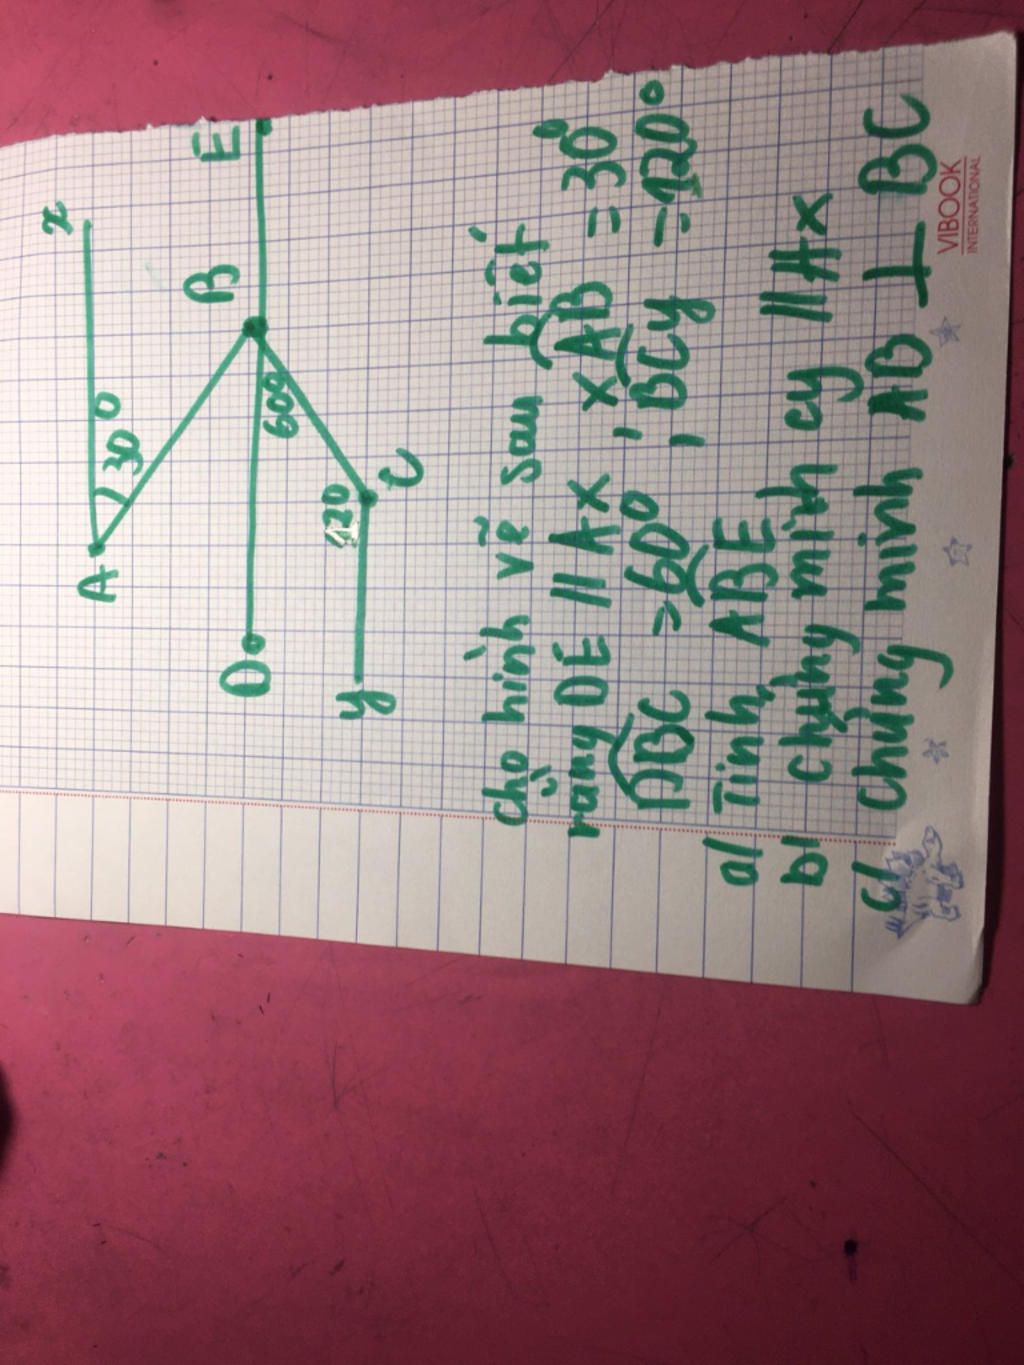 x
A
30°
B
E
D
60°
120
C
y
cho hình vẽ sau biết
rằng DE // Ax , xAB = 30°
DBC = 60° , BCy = 120°
a/ Tính ABE
b/ chứng minh cy // Ax
c/ chứng minh AB ⊥ BC
VIBOOK
INTERNATIONAL